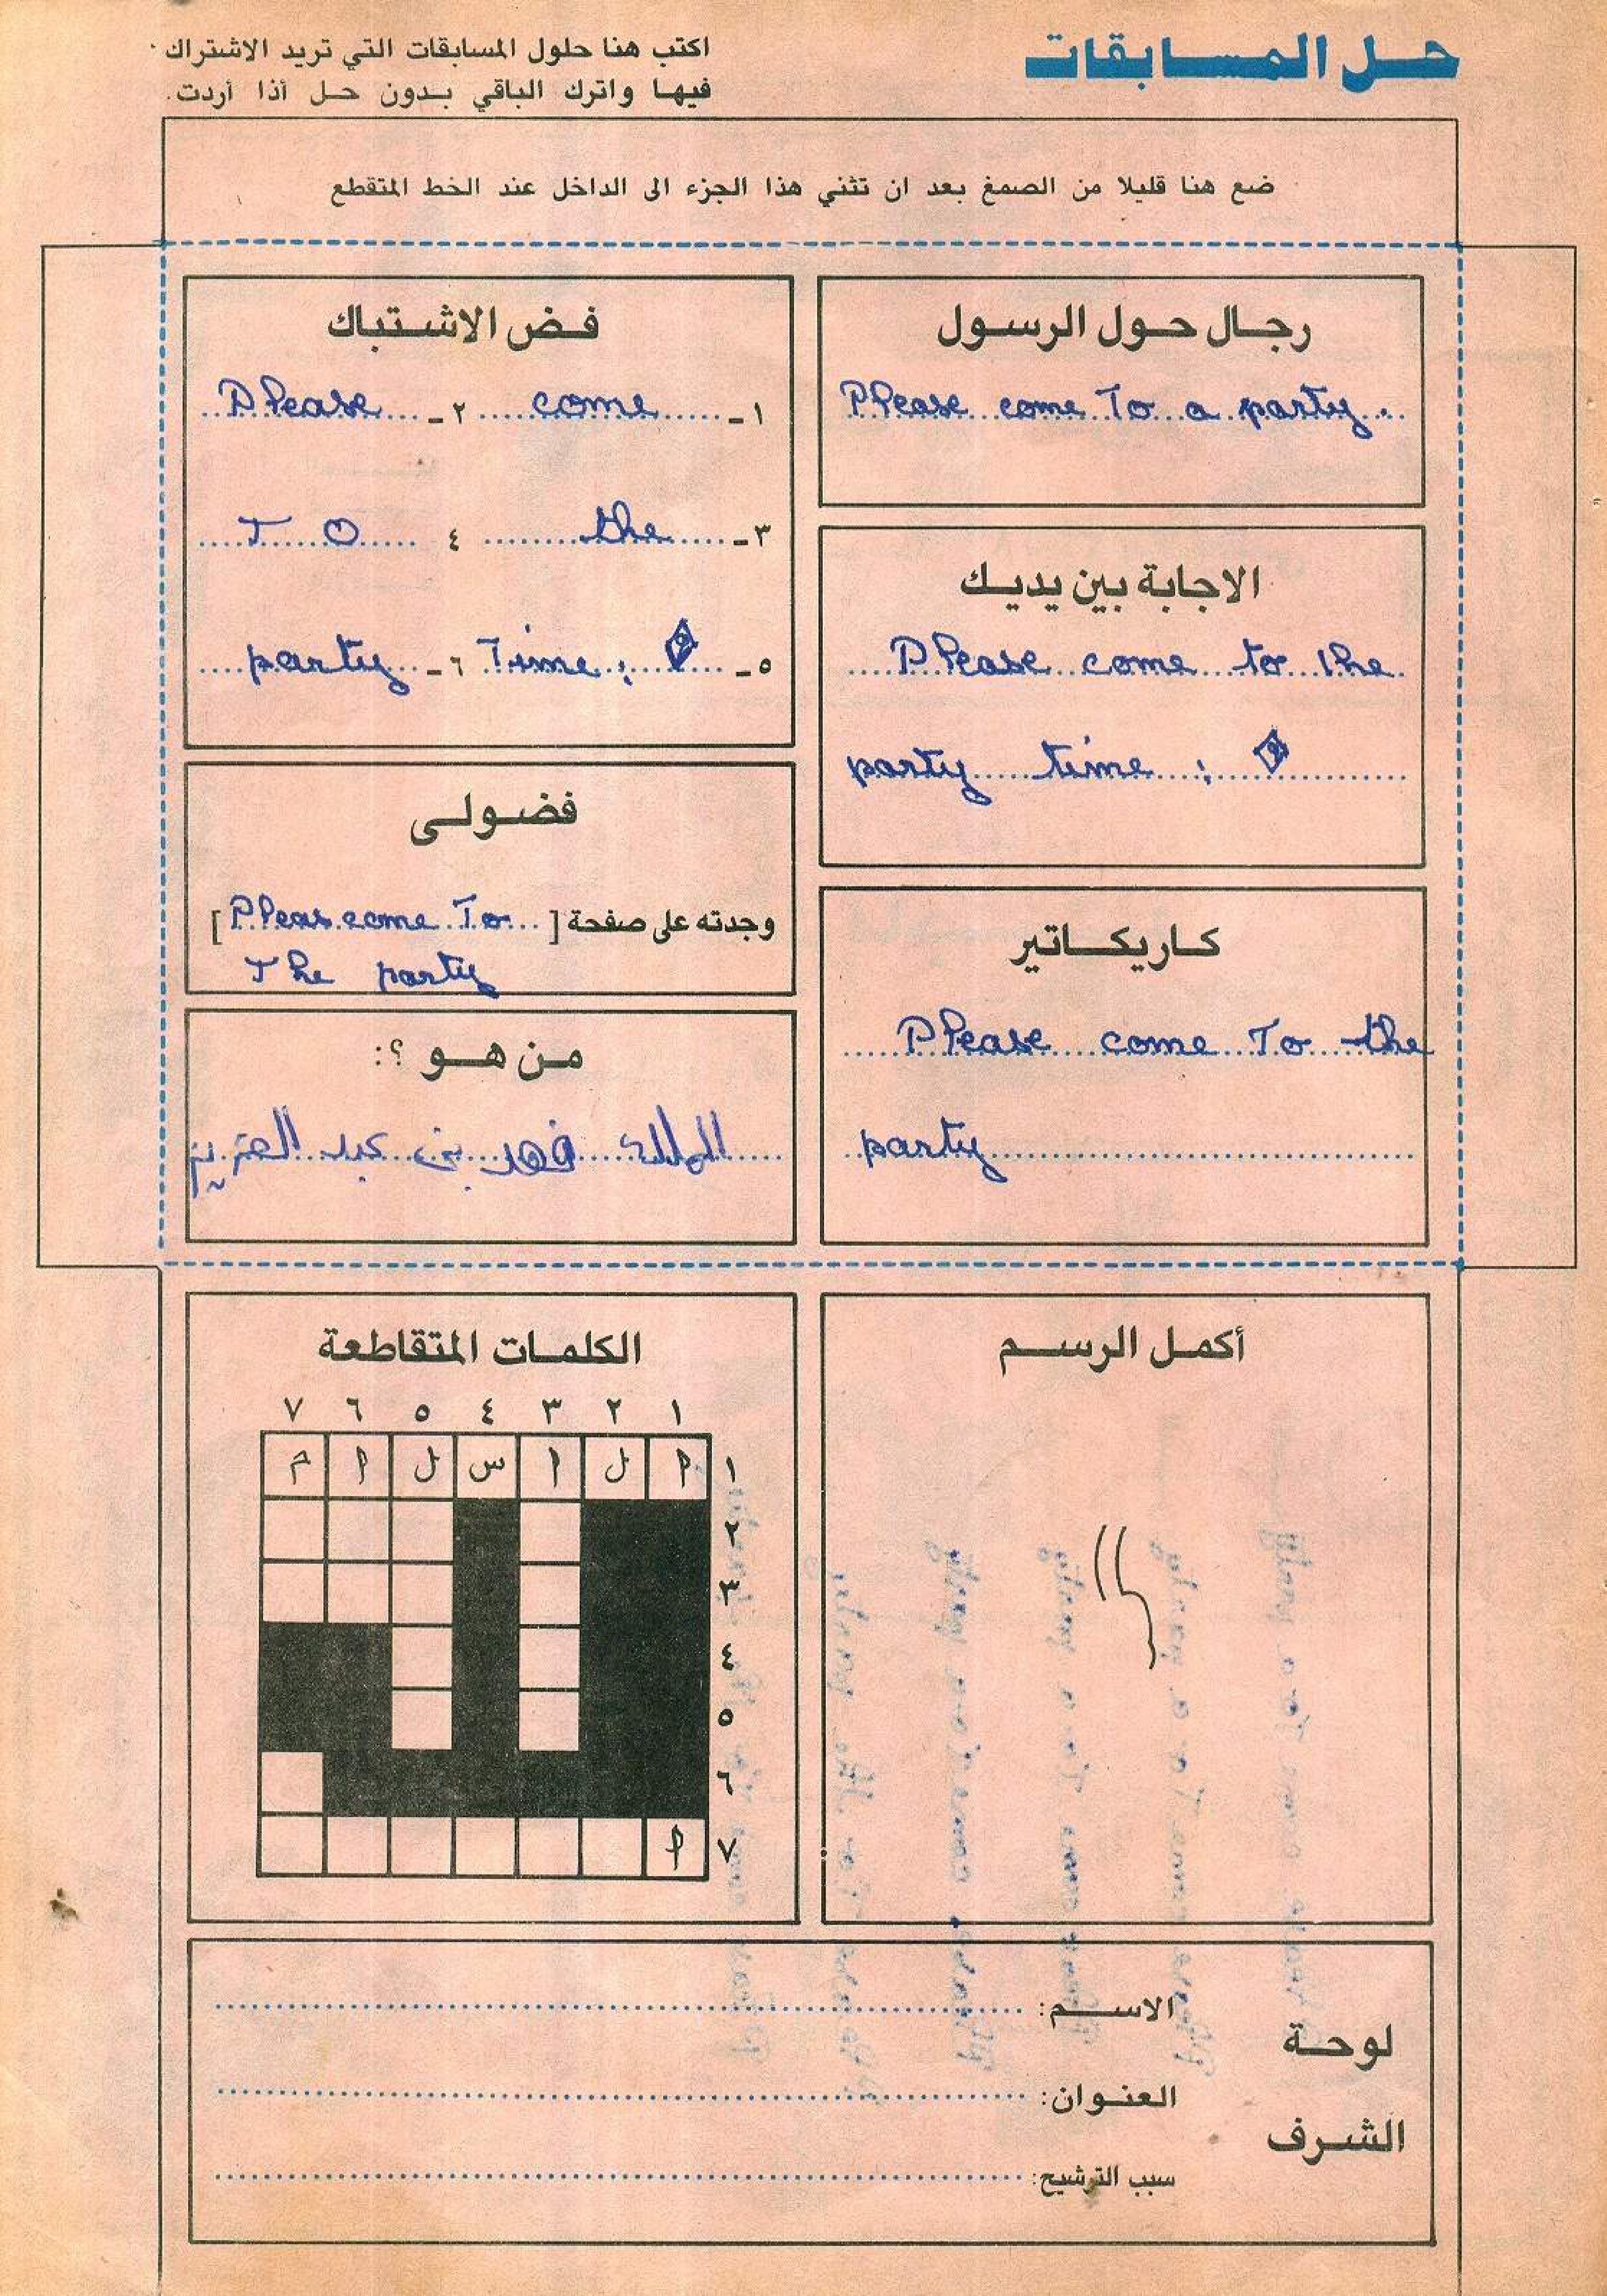 حل المسابقات
اكتب هنا حلول المسابقات التي تريد الاشتراك
فيها واترك الباقي بدون حل أذا أردت.
ضع هنا قليلا من الصمغ بعد ان تثني هذا الجزء الى الداخل عند الخط المتقطع
رجال حول الرسول
Please come To a party
فض الاشتباك
١- come ٢- Please
٣- the ٤ TO
٥- Time: ٦- party
الاجابة بين يديك
Please come to the
party time :
فضولى
وجدته على صفحة [ Pleas come To ]
The party
كاريكاتير
Please come To the
party
من هو ؟:
الملك فهد بن عبد العزيز
أكمل الرسم
الكلمات المتقاطعة
١ ٢ ٣ ٤ ٥ ٦ ٧
١ ا ل ا س ل ا م
٢
٣
٤
٥
٦
٧ ا
لوحة الشرف
الاسم:
العنوان:
سبب الترشيح: